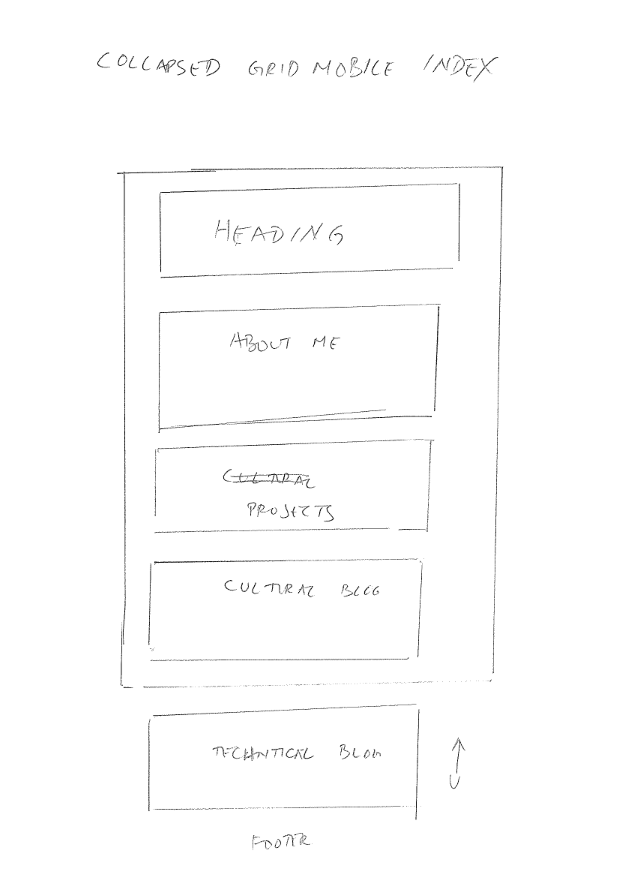 COLLAPSED GRID MOBILE INDEX
HEADING
ABOUT ME
CULTURAL
PROJECTS
CULTURAL BLOG
TECHNTICAL BLOG
FOOTER